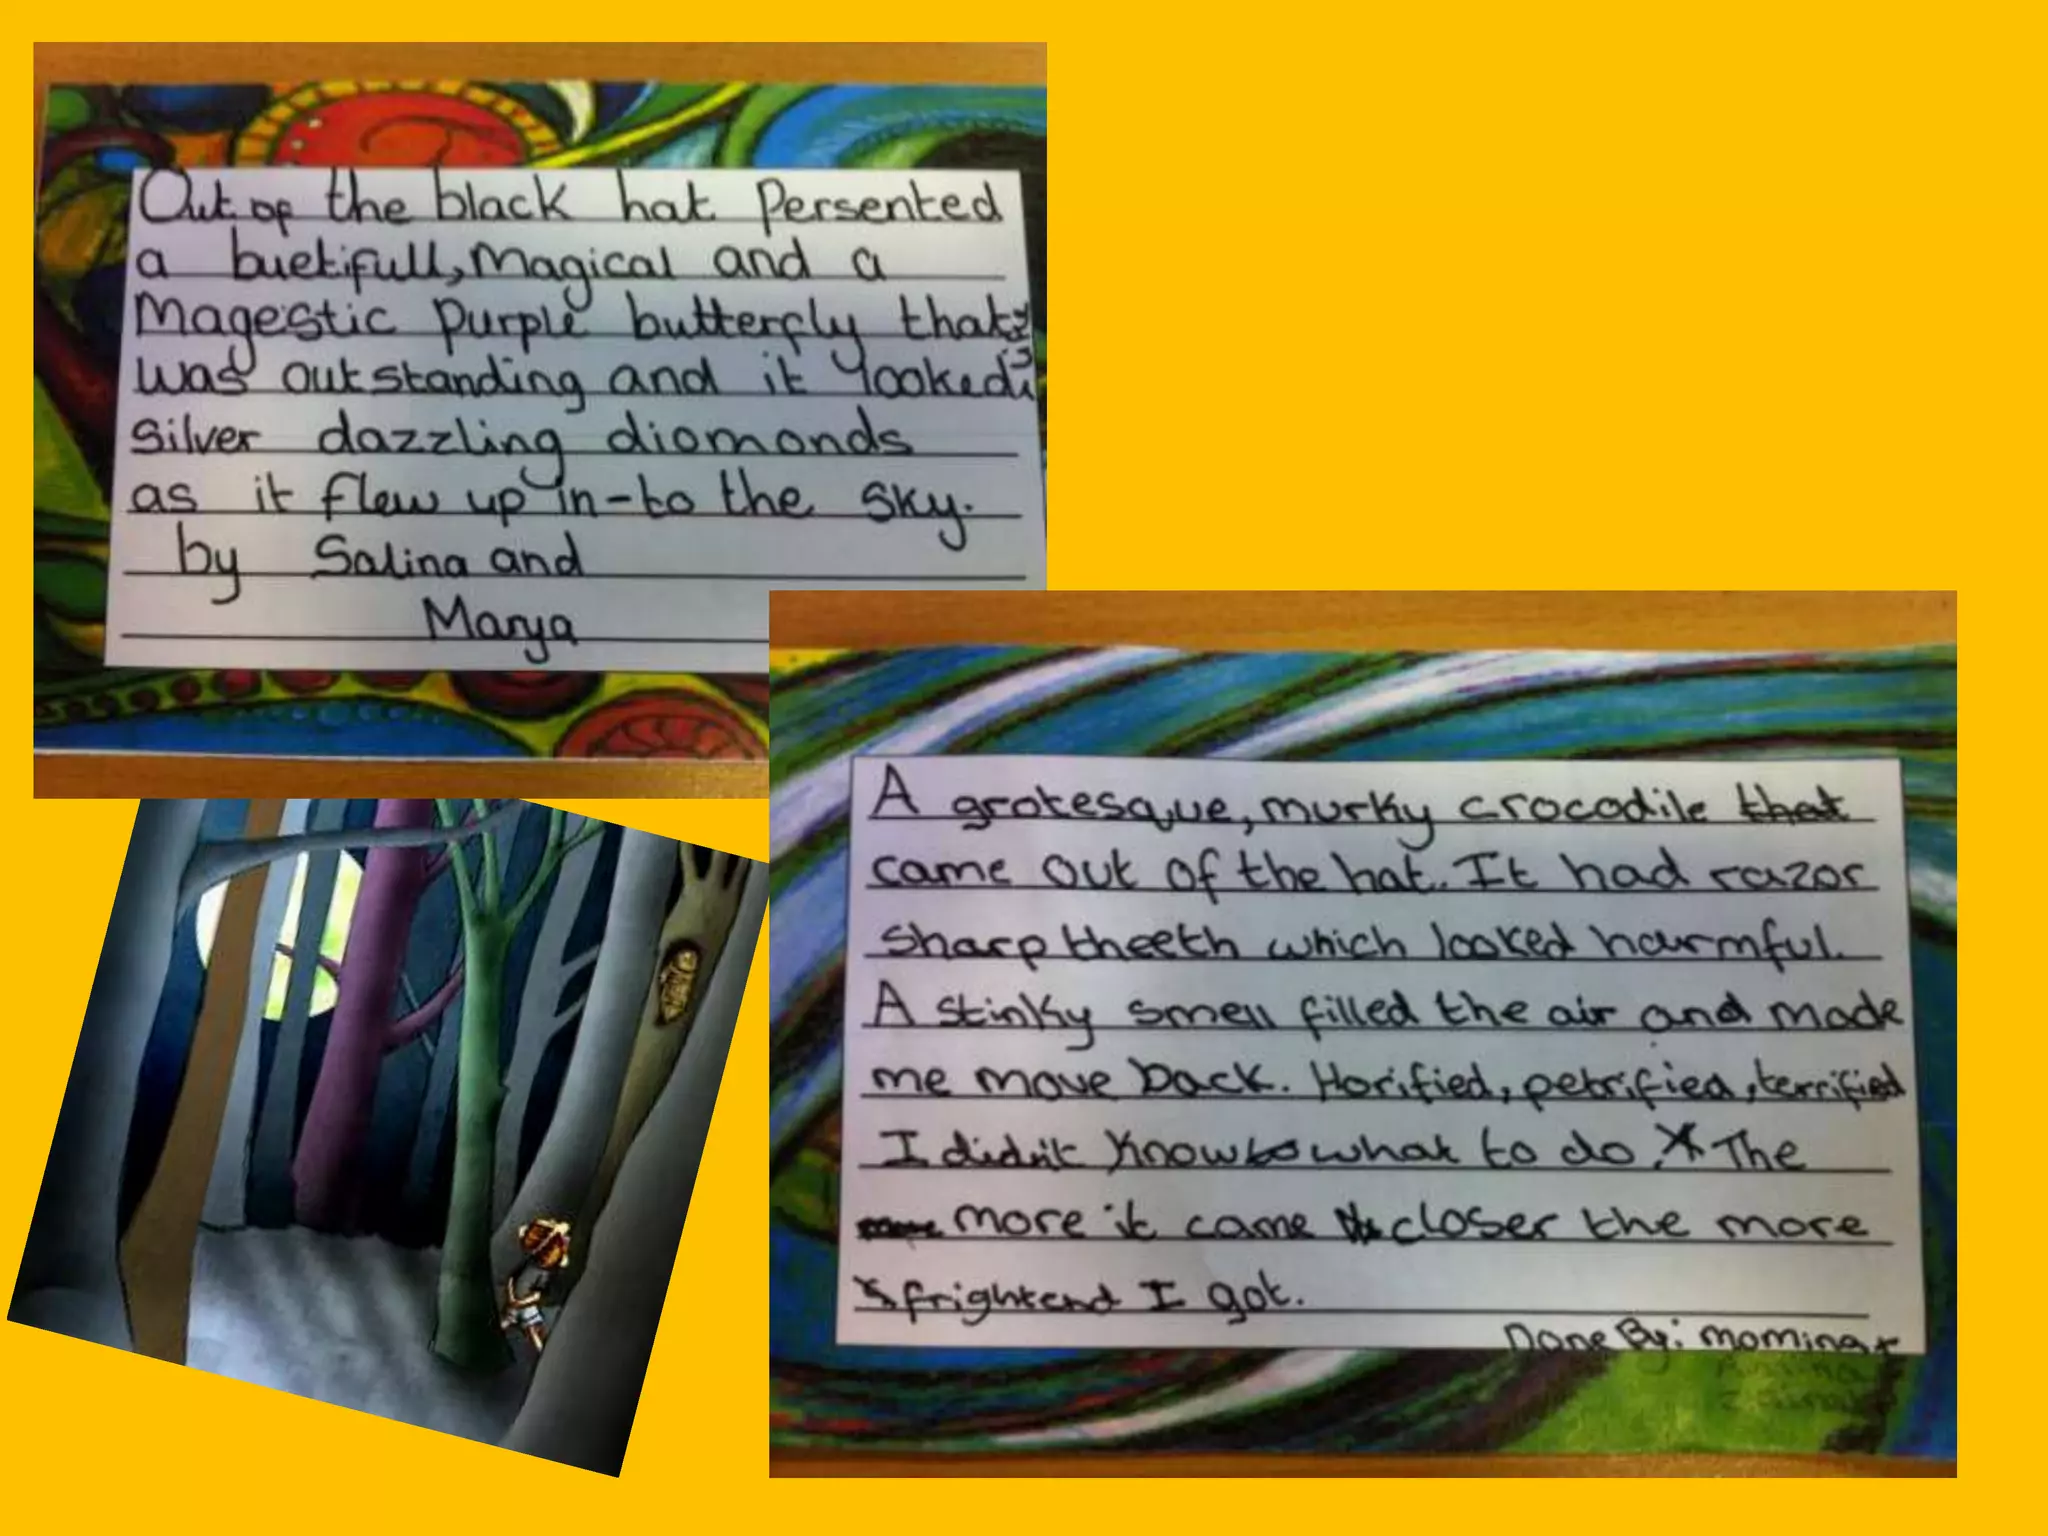 Out of the black hat Persented
a buetifull, Magical and a
Magestic purple butterfly that
was outstanding and it looked
silver dazzling diomonds
as it flew up in-to the sky.
by Salina and
Marya
A grotesque, murky crocodile that
came out of the hat. It had razor
sharp theeth which looked harmful.
A stinky smell filled the air and made
me move back. Horified, petrified, terrified
I didn't know to what to do. The
more it came closer the more
frightend I got.
Done By: momina +